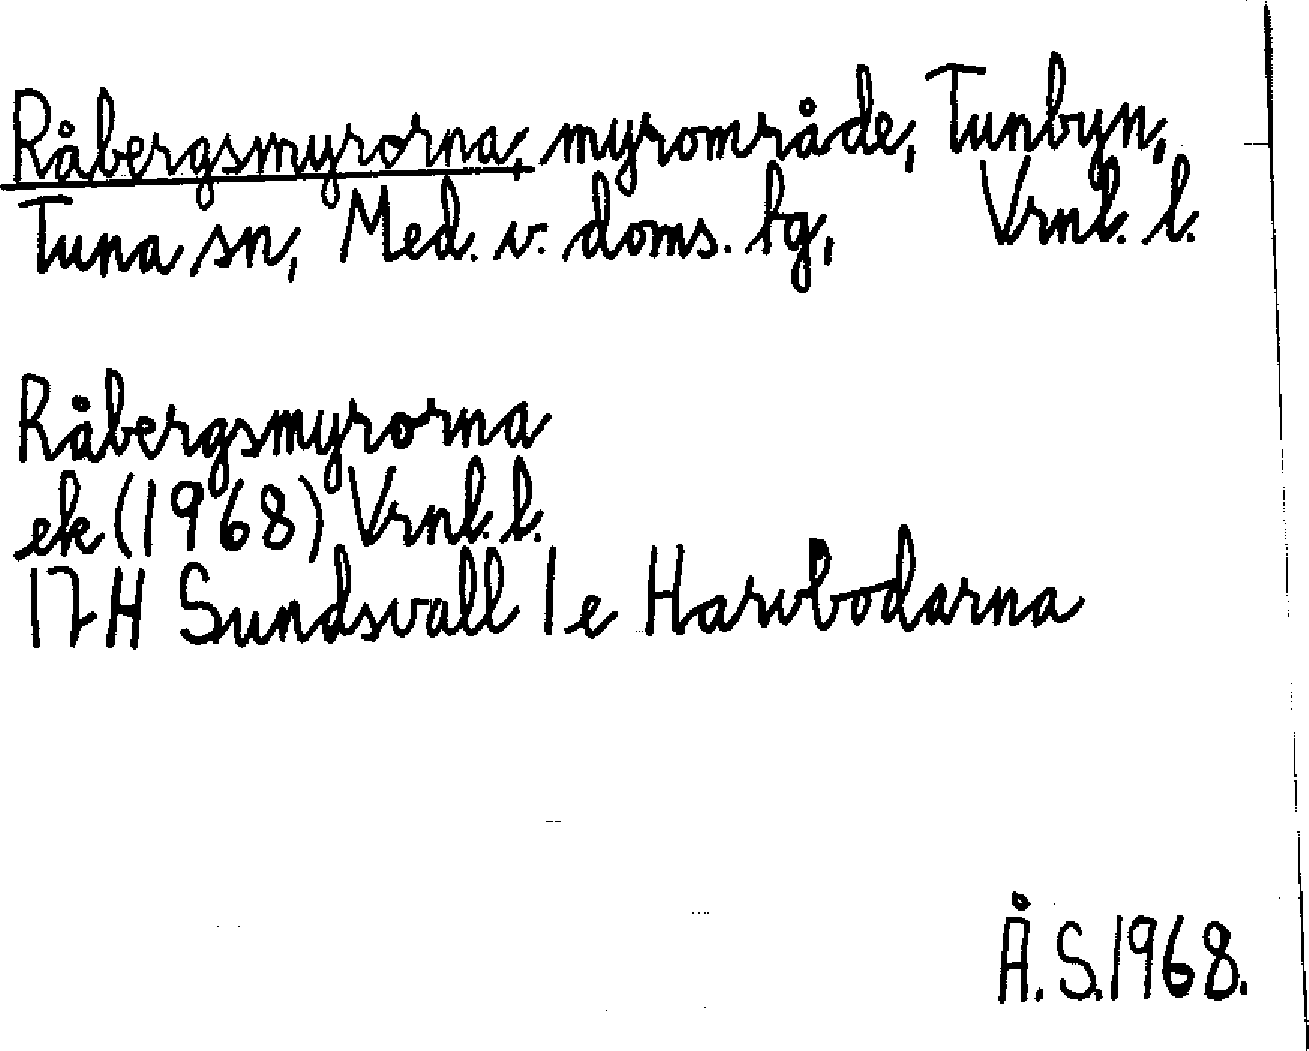 Råbergsmyrorna, myrområde, Tunbyn,
Tuna sn, Med. v. doms. tg, Vrnl. l.
Råbergsmyrorna
ek (1968) Vrnl. l.
17H Sundsvall 1e Harvbodarna
Å. S. 1968.